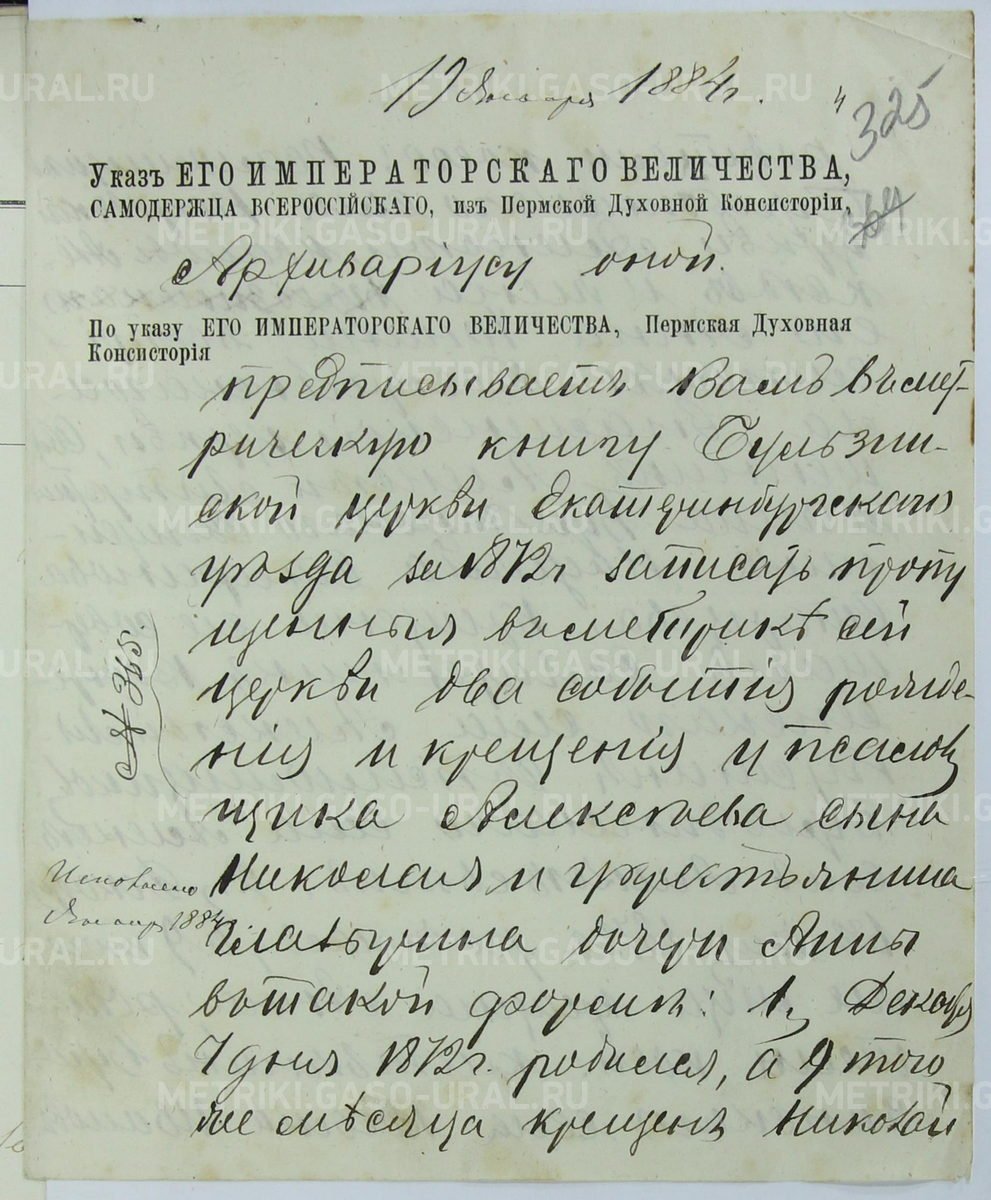 17 Января 1884 г.
4
325
Указъ ЕГО ИМПЕРАТОРСКАГО ВЕЛИЧЕСТВА,
САМОДЕРЖЦА ВСЕРОССІЙСКАГО, изъ Пермской Духовной Консисторіи,
64
Архиваріусу оной.
По указу ЕГО ИМПЕРАТОРСКАГО ВЕЛИЧЕСТВА, Пермская Духовная
Консисторія
предписываетъ Вамъ въ мет-
рическую книгу Бульзин-
ской церкви Екатеринбургскаго
уѣзда за 1872 г записать пропу
щенныя въ метрикѣ сей
церкви два событія рожде-
нія и крещенія у псалом
щика Алексѣева сына
Николая и у крестьянина
дочери Анны
въ такой формѣ: 1, Декабря
7 дня 1872 г. родился, а 9 того
же мѣсяца крещенъ Николай
№ 345.
Исполнено
Январ 1884
METRIKI.GASO-URAL.RU